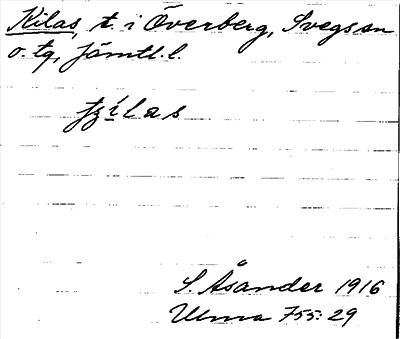 Kilas, t. i Överberg, Svegs sn
o. tg, Jämtl. l.
tjilas
S. Åsander 1916
Ulma 755:29